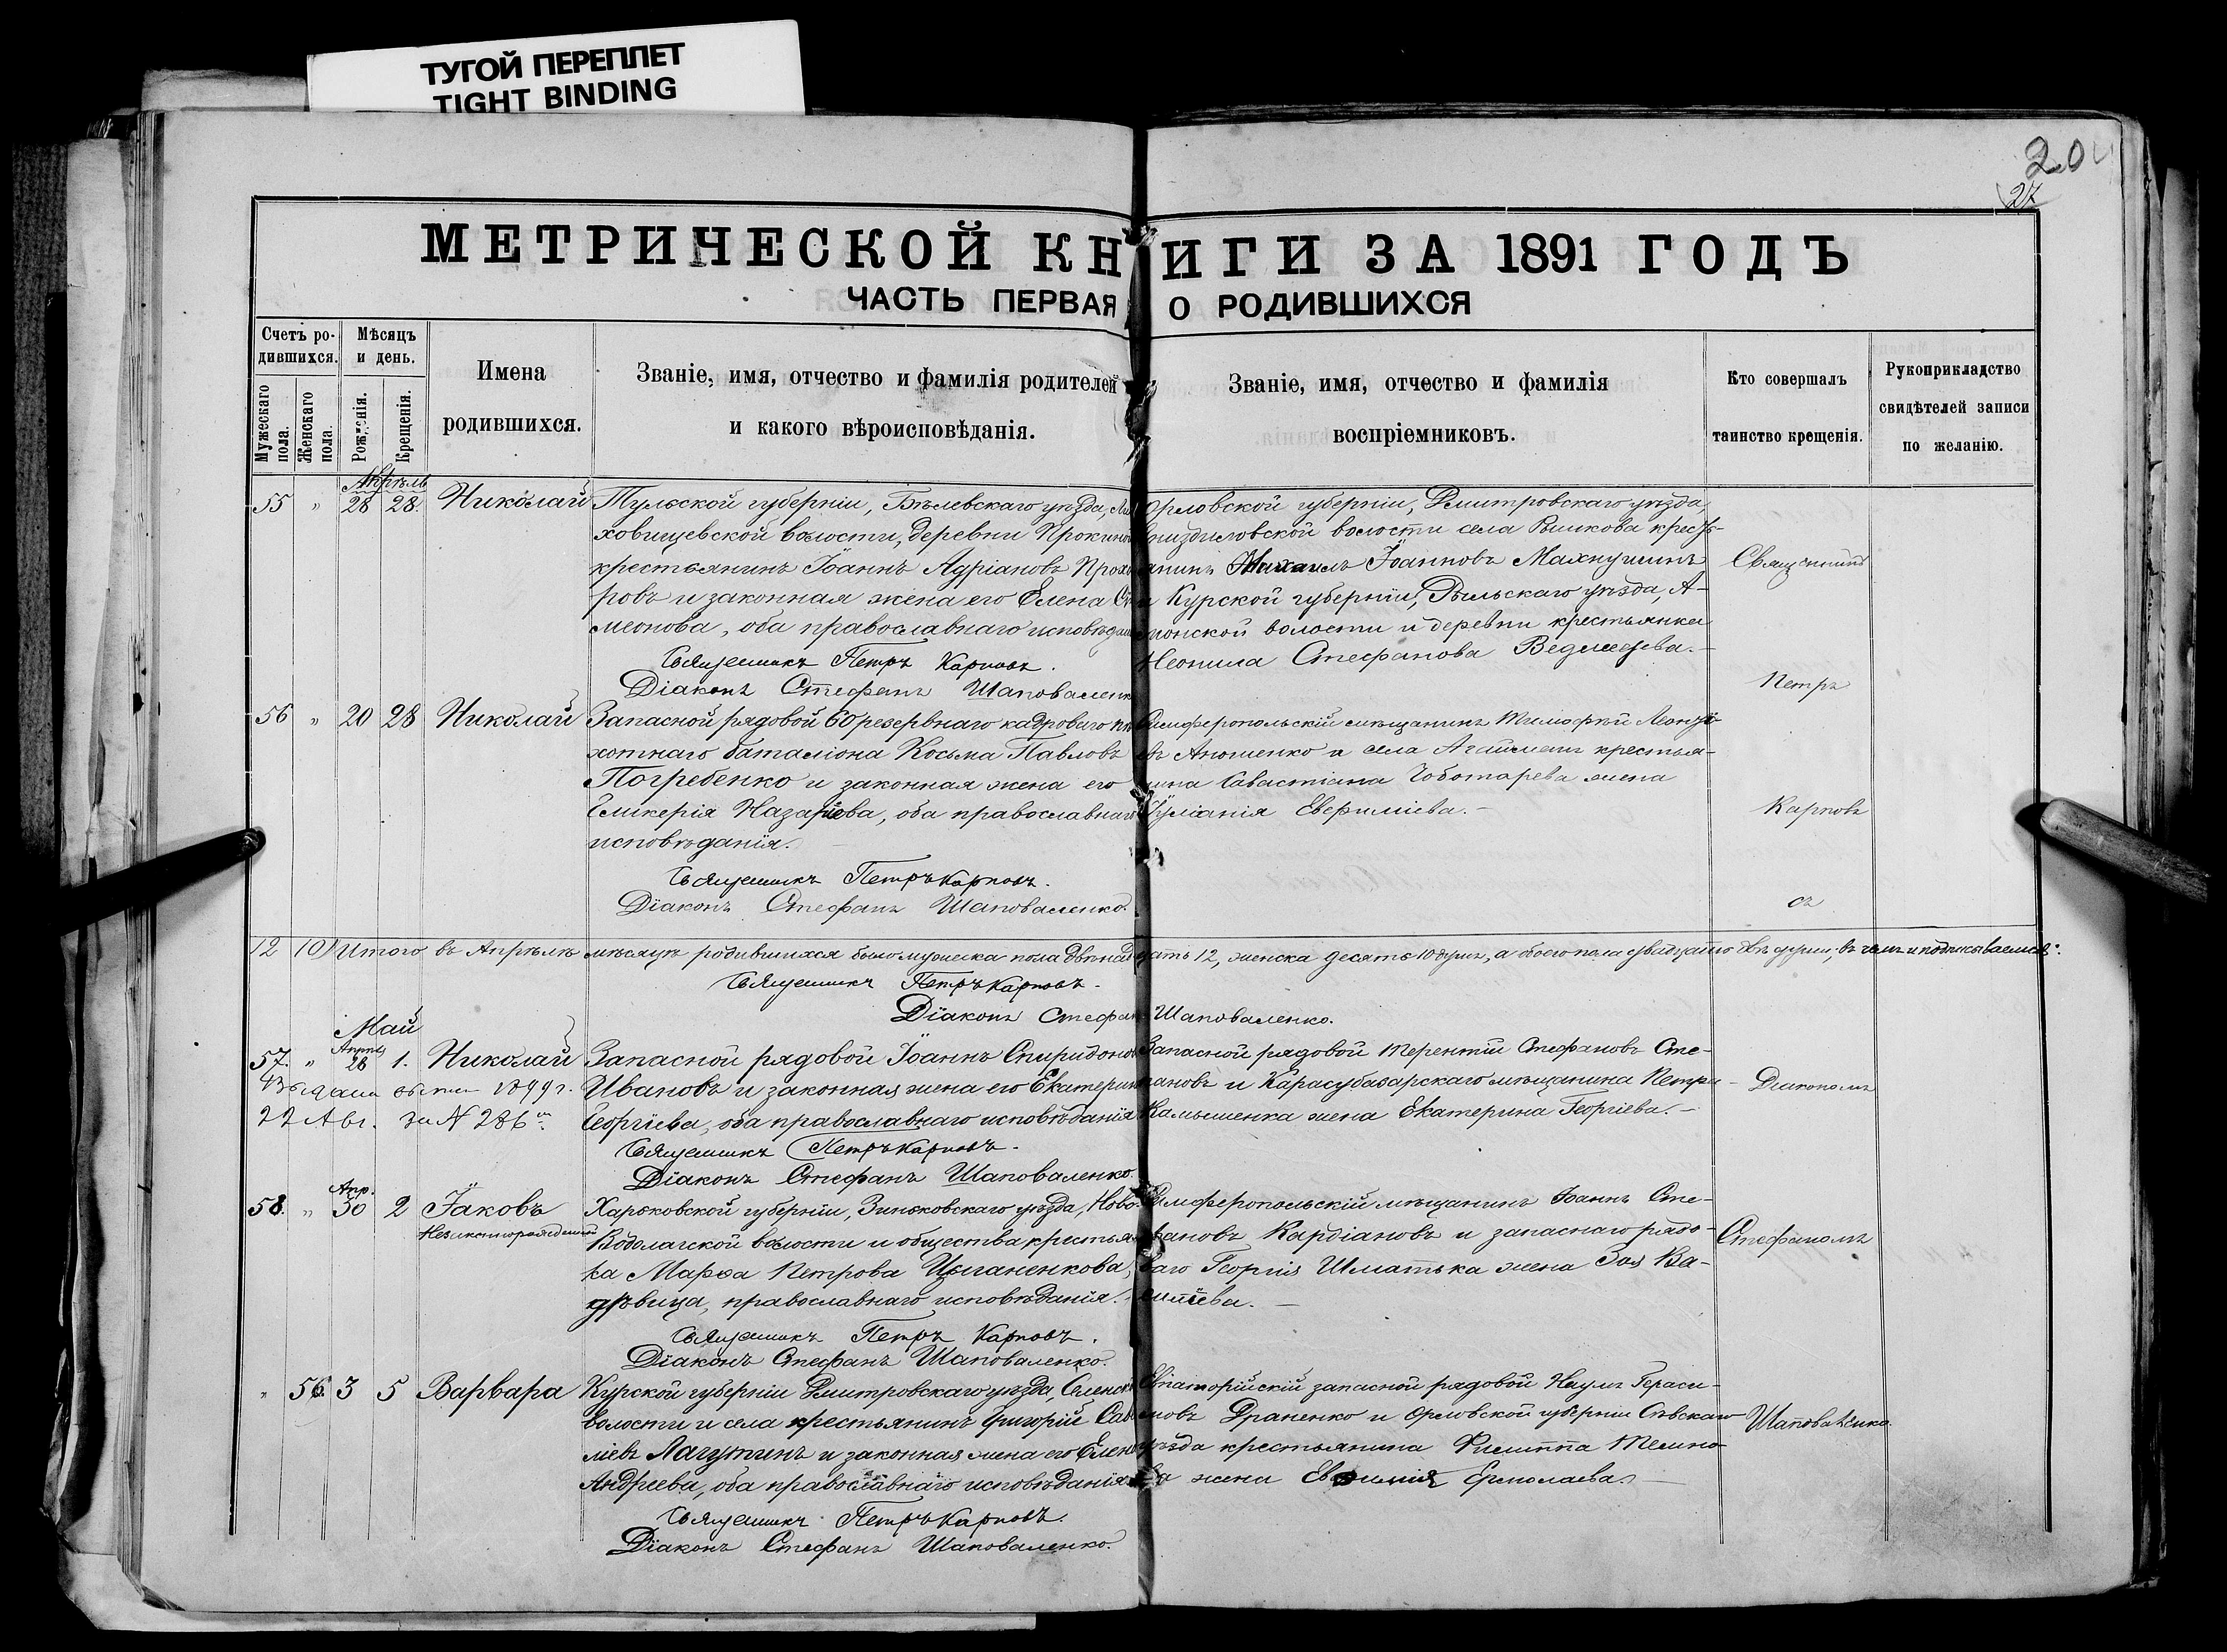 ТУГОЙ ПЕРЕПЛЕТ
TIGHT BINDING
20
27
МЕТРИЧЕСКОЙ КНИГИ ЗА 1891 ГОДЪ
ЧАСТЬ ПЕРВАЯ О РОДИВШИХСЯ
Счетъ ро-
дившихся.
Мужескаго
пола.
Женскаго
пола.
Мѣсяцъ
и день.
Рожденія.
Крещенія.
Имена
родившихся.
Званіе, имя, отчество и фамилія родителей
и какого вѣроисповѣданія.
Званіе, имя, отчество и фамилія
воспріемниковъ.
Кто совершалъ
таинство крещенія.
Рукоприкладство
свидѣтелей записи
по желанію.
Апрѣль
55 " 28 28. Николай
Тульской губерніи, Бѣлевскаго уѣзда,
ховищевской волости, деревни
крестьянинъ Іоаннъ Адріановъ
ровъ и законная жена его Елена
меонова, оба православнаго
Священникъ Петръ Карповъ.
Діаконъ Стефанъ Шаповаленко
Орловской губерніи, Дмитровскаго уѣзда,
волости села крестъ-
янинъ Михаилъ Іоанновъ Махнушинъ
и Курской губерніи, Рыльскаго уѣзда, А-
монской волости и деревни крестьянка
Неонила Стефанова
56 " 20 28 Николай
Запасной рядовой 60 резервнаго кадроваго пѣ
хотнаго баталіона Косьма Павловъ
Погребенко и законная жена его
Гликерія Назаріева, оба православнаго
исповѣданія.
Священникъ Петръ Карповъ.
Діаконъ Стефанъ Шаповаленко.
Симферопольскій мѣщанинъ Тимофей Леонті-
евъ Аношенко и села Агайманъ крестья-
нина Савастіана Чоботарева жена
Іуліанія Евфиміева.
12 10 Итого въ Апрѣлѣ мѣсяцѣ родившихся было мужеска пола двѣнадцать 12, женска десять 10 душъ, а обоего пола двадцать двѣ души; въ чемъ и подписываемся:
Священникъ Петръ Карповъ.
Діаконъ Стефанъ Шаповаленко.
Май
57. " Апрѣль 28 1. Николай
22 Авг. за № 286
Запасной рядовой Іоаннъ Спиридоновъ
Ивановъ и законная жена его Екатерина
Георгіева, оба православнаго исповѣданія
Священникъ Петръ Карповъ.
Діаконъ Стефанъ Шаповаленко.
Запасной рядовой Терентій Стефановъ Сте-
пановъ и Карасубазарскаго мѣщанина Петра
Камышенка жена Екатерина Георгіева.
58. " Апр. 30 2 Іаковъ
Незаконнорожденный
Харьковской губерніи, уѣзда, Ново-
Водолагской волости и общества крестьян
ка Марѳа Петрова Цыганенкова,
дѣвица, православнаго исповѣданія.
Священникъ Петръ Карповъ.
Діаконъ Стефанъ Шаповаленко.
Симферопольскій мѣщанинъ Іоаннъ Сте-
фановъ Кардіановъ и запаснаго рядо-
ваго Георгія Шматька жена Зоя Ва-
" 56 3 5 Варвара
Курской губерніи Дмитровскаго уѣзда,
волости и села крестьянинъ Григорій
Лагутинъ и законная жена его Елена
Андреева, оба православнаго исповѣданія
Священникъ Петръ Карповъ.
Діаконъ Стефанъ Шаповаленко.
Евпаторійскій запасной рядовой Наумъ Гераси-
мовъ Драненко и Орловской губерніи Сѣвскаго
уѣзда крестьянина Филиппа
жена Евѳимія Ермолаева.
Священникъ
Петръ
Карповъ
съ
Діакономъ
Стефаномъ
Шаповаленко.